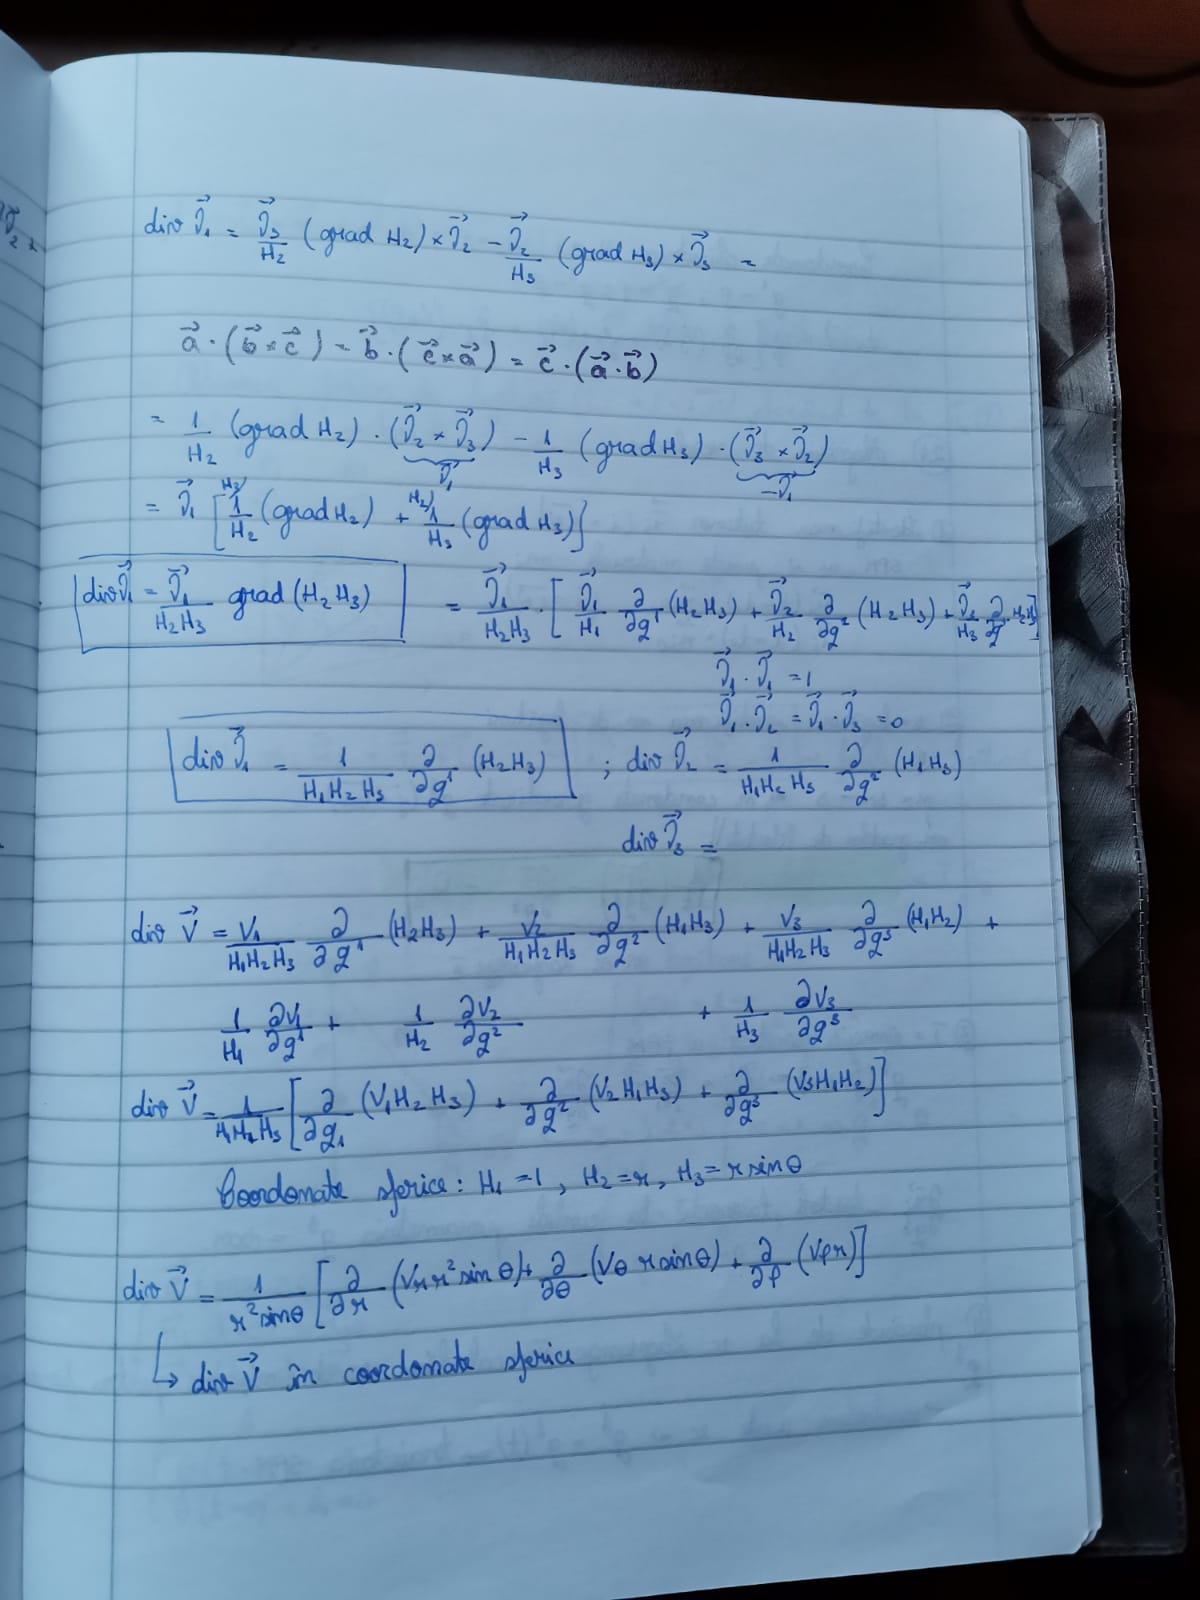 div J⃗₁ = J⃗₃/H₂ (grad H₂) × J⃗₂ − J⃗₂/H₃ (grad H₃) × J⃗₃ =
a⃗ · (b⃗ × c⃗) = b⃗ · (c⃗ × a⃗) = c⃗ · (a⃗ · b⃗)
= 1/H₂ (grad H₂) · (J⃗₂ × J⃗₃) − 1/H₃ (grad H₃) · (J⃗₃ × J⃗₂)
J⃗₁ −J⃗₁
= J⃗₁ [ H₃) 1/H₂ (grad H₂) + H₂) 1/H₃ (grad H₃) ]
div J⃗₁ = J⃗₁/H₂H₃ grad (H₂H₃) = J⃗₁/H₂H₃ · [ J⃗₁/H₁ ∂/∂q¹ (H₂H₃) + J⃗₂/H₂ ∂/∂q² (H₂H₃) + J⃗₃/H₃ ∂/∂q · H₂H₃ ]
J⃗₁ · J⃗₁ = 1
J⃗₁ · J⃗₂ = J⃗₁ · J⃗₃ = 0
div J⃗₁ = 1/H₁H₂H₃ ∂/∂q¹ (H₂H₃) ; div J⃗₂ = 1/H₁H₂H₃ ∂/∂q² (H₁H₃)
div J⃗₃ =
div V⃗ = V₁/H₁H₂H₃ ∂/∂q¹ (H₂H₃) + V₂/H₁H₂H₃ ∂/∂q² (H₁H₃) + V₃/H₁H₂H₃ ∂/∂q³ (H₁H₂) +
1/H₁ ∂V₁/∂q¹ + 1/H₂ ∂V₂/∂q² + 1/H₃ ∂V₃/∂q³
div V⃗ = 1/H₁H₂H₃ [ ∂/∂q₁ (V₁H₂H₃) + ∂/∂q² (V₂H₁H₃) + ∂/∂q³ (V₃H₁H₂) ]
Coordonate sferice : H₁ = 1 , H₂ = r , H₃ = r sin θ
div V⃗ = 1/r² sin θ [ ∂/∂r (Vr r² sin θ) + ∂/∂θ (Vθ r sin θ) + ∂/∂φ (Vφ r) ]
↳ div V⃗ în coordonate sferice